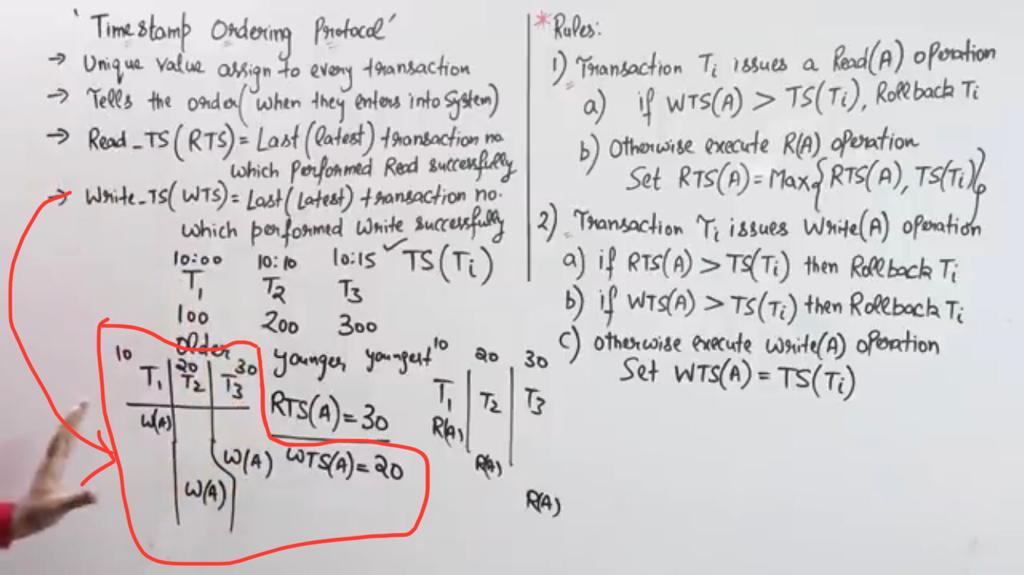 'Timestamp Ordering Protocol'
→ Unique value assign to every transaction
→ Tells the order (when they enters into System)
→ Read_TS(RTS) = Last (latest) transaction no.
which performed Read successfully
→ Write_TS(WTS) = Last (Latest) transaction no.
which performed Write successfully
10:00 10:10 10:15 ✓ TS(Ti)
T1 T2 T3
100 200 300
older younger youngest
10 20 30
T1 T2 T3
W(A)
W(A)
W(A)
RTS(A) = 30
WTS(A) = 20
10 20 30
T1 T2 T3
R(A)
R(A)
R(A)
*Rules:
1) Transaction Ti issues a Read(A) operation
a) if WTS(A) > TS(Ti), Rollback Ti
b) otherwise execute R(A) operation
Set RTS(A) = Max{RTS(A), TS(Ti)}
2) Transaction Ti issues Write(A) operation
a) if RTS(A) > TS(Ti) then Rollback Ti
b) if WTS(A) > TS(Ti) then Rollback Ti
c) otherwise execute write(A) operation
Set WTS(A) = TS(Ti)